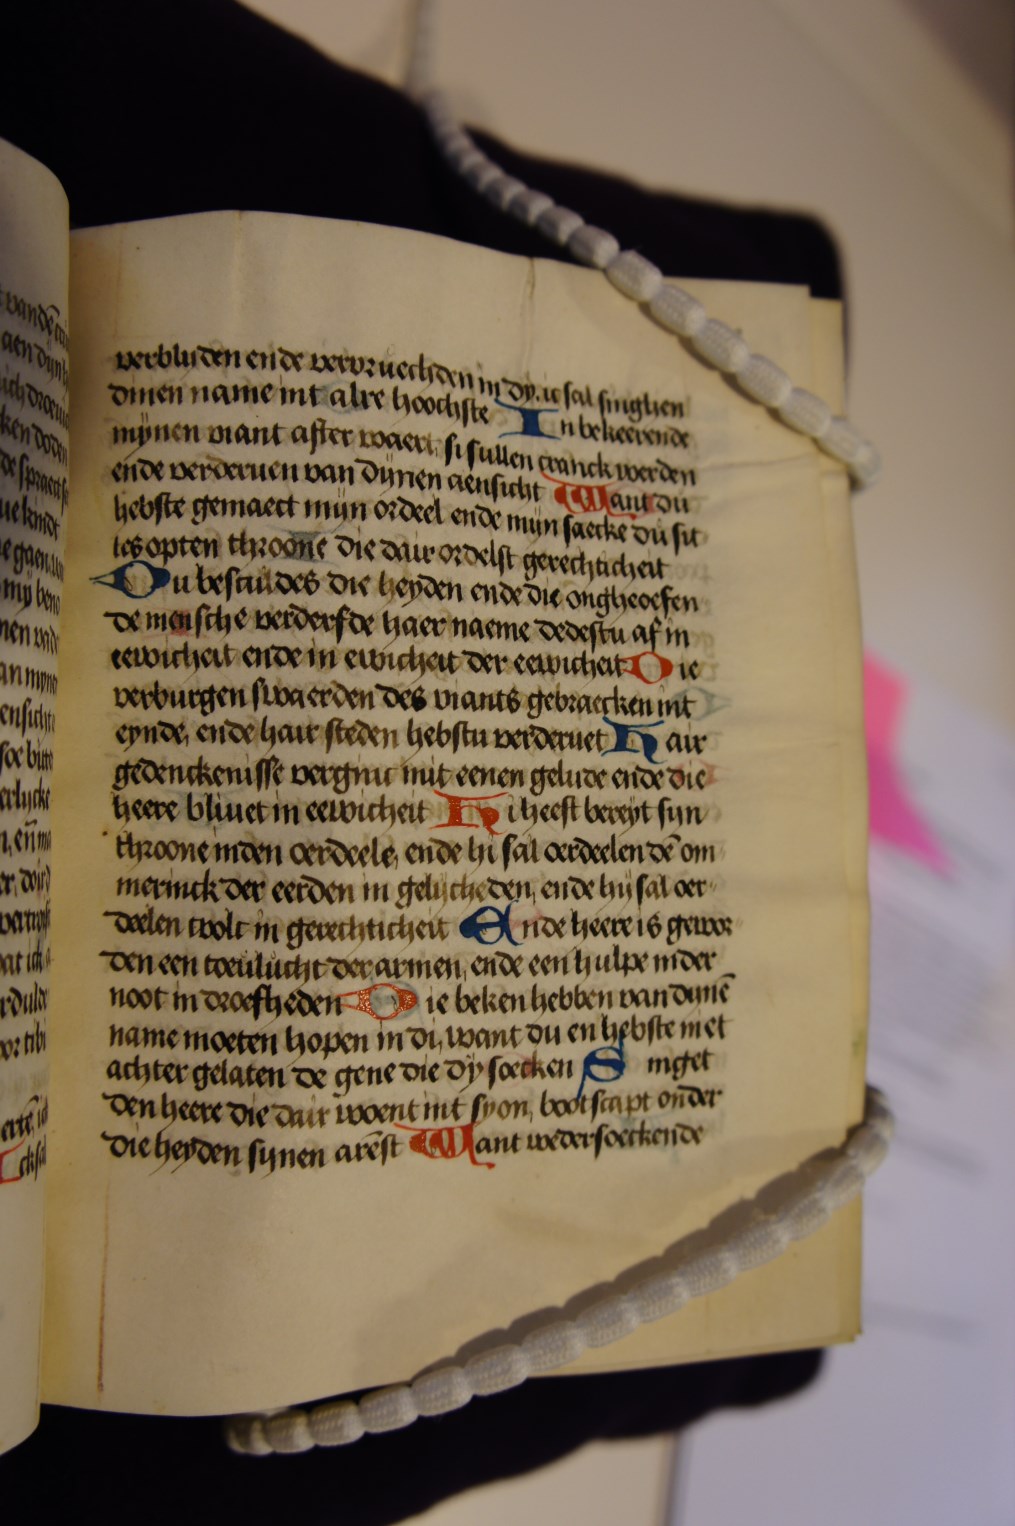 verbliden ende vervruechden in dy. ic sal singhen
dinen name int alre hoochste In bekeerende
mijnen viant after waert, si sullen cranck werden
ende verderuen van dijnen aensicht Want du
hebste gemaect mijn ordeel ende mijn saecke du sit
tes opten throone die dair ordelst gerechticheit
Du bescuides die heyden ende die ongheoefen
de mensche verderfde haer naeme dedestu af in
eewicheit ende in ewicheit der eewicheit Die
verburgen swaerden des viants gebraecken int
eynde, ende hair steden hebstu verderuet Hair
gedenckenisse verginc mit eenen gelude ende die
heere bliuet in eewicheit Hi heeft bereyt sijn
throone inden oerdeele, ende hi sal oerdeelen dē om
merinck der eerden in gelijcheden, ende hij sal oer
deelen tvolc in gerechticheit Ende heere is gewor
den een toeulucht der armen, ende een hulpe inder
noot in droefheden Die beken hebben van dijnē
name moeten hopen in di, want du en hebste niet
achter gelaten de gene die dy soecken Singet
den heere die dair woent int syon, bootscapt onder
die heyden sijnen arēst Want wedersoeckende